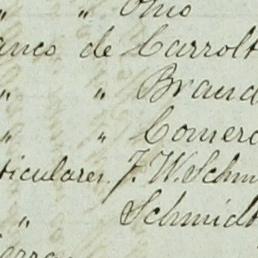 " " Ohio
anco de Carrolt
" " Brand
" " Comerc
ticulares. J. W. Schm
" Schmidt